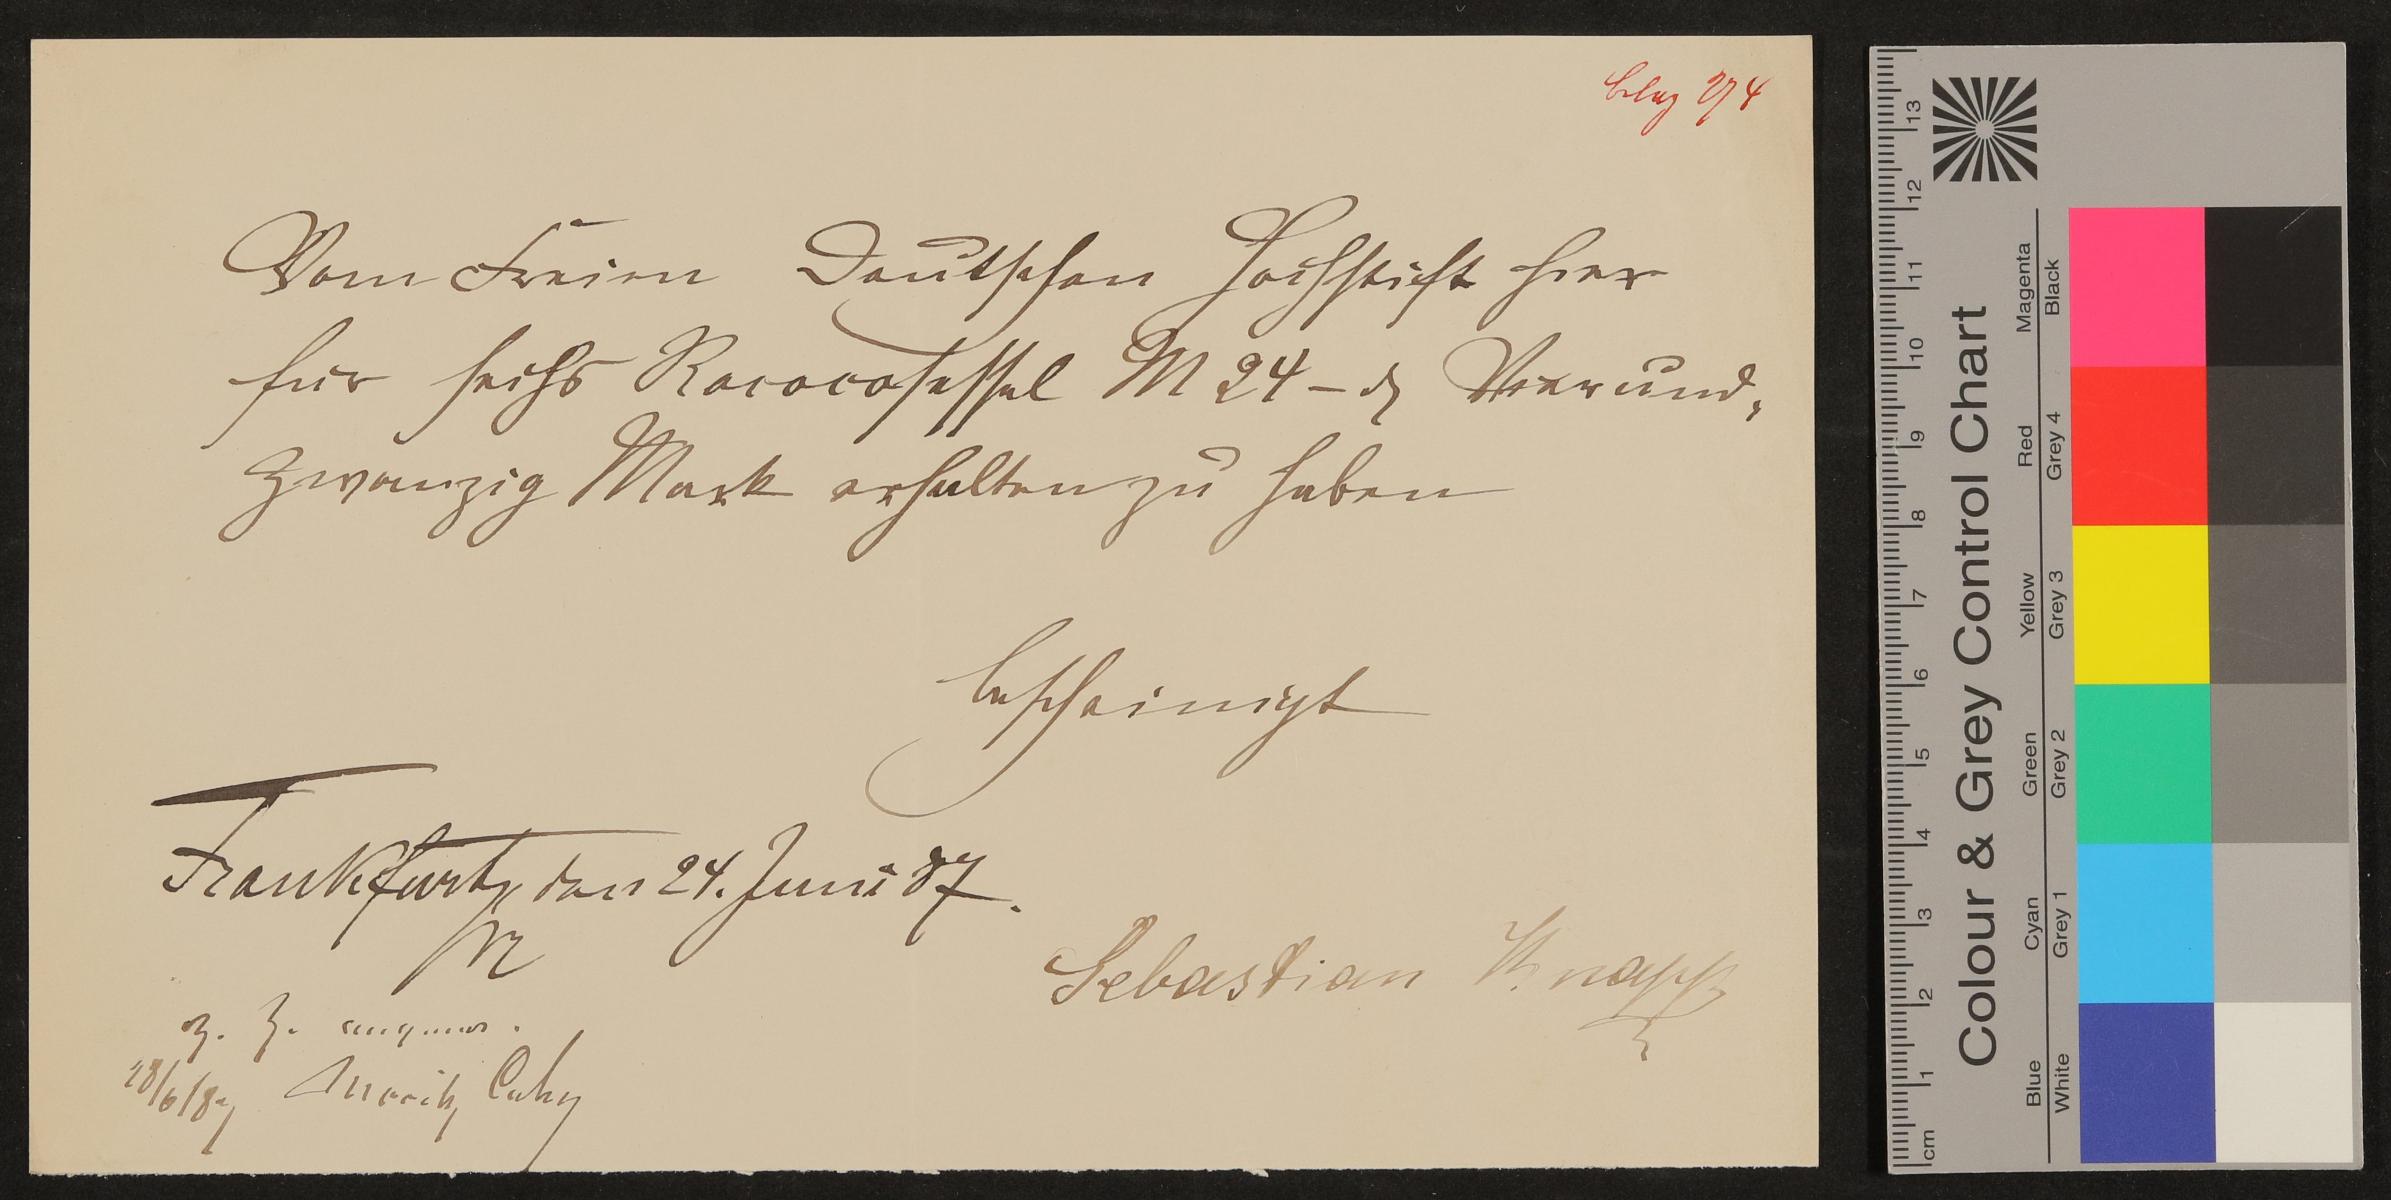 belag 274
Vom Freien Deutschen Hochstift hier
für sechs Rococosessel M 24 – ₰ Vierund-
zwanzig Mark erhalten zu haben
bescheinigt
Frankfurt/M den 24. Juni 87.
Sebastian Knapp
z. Z.
28/6/87 Moritz Cahn
13
12
11
10
9
8
7
6
5
4
3
2
1
cm
Colour & Grey Control Chart
Magenta
Red
Yellow
Green
Cyan
Blue
Black
Grey 4
Grey 3
Grey 2
Grey 1
White